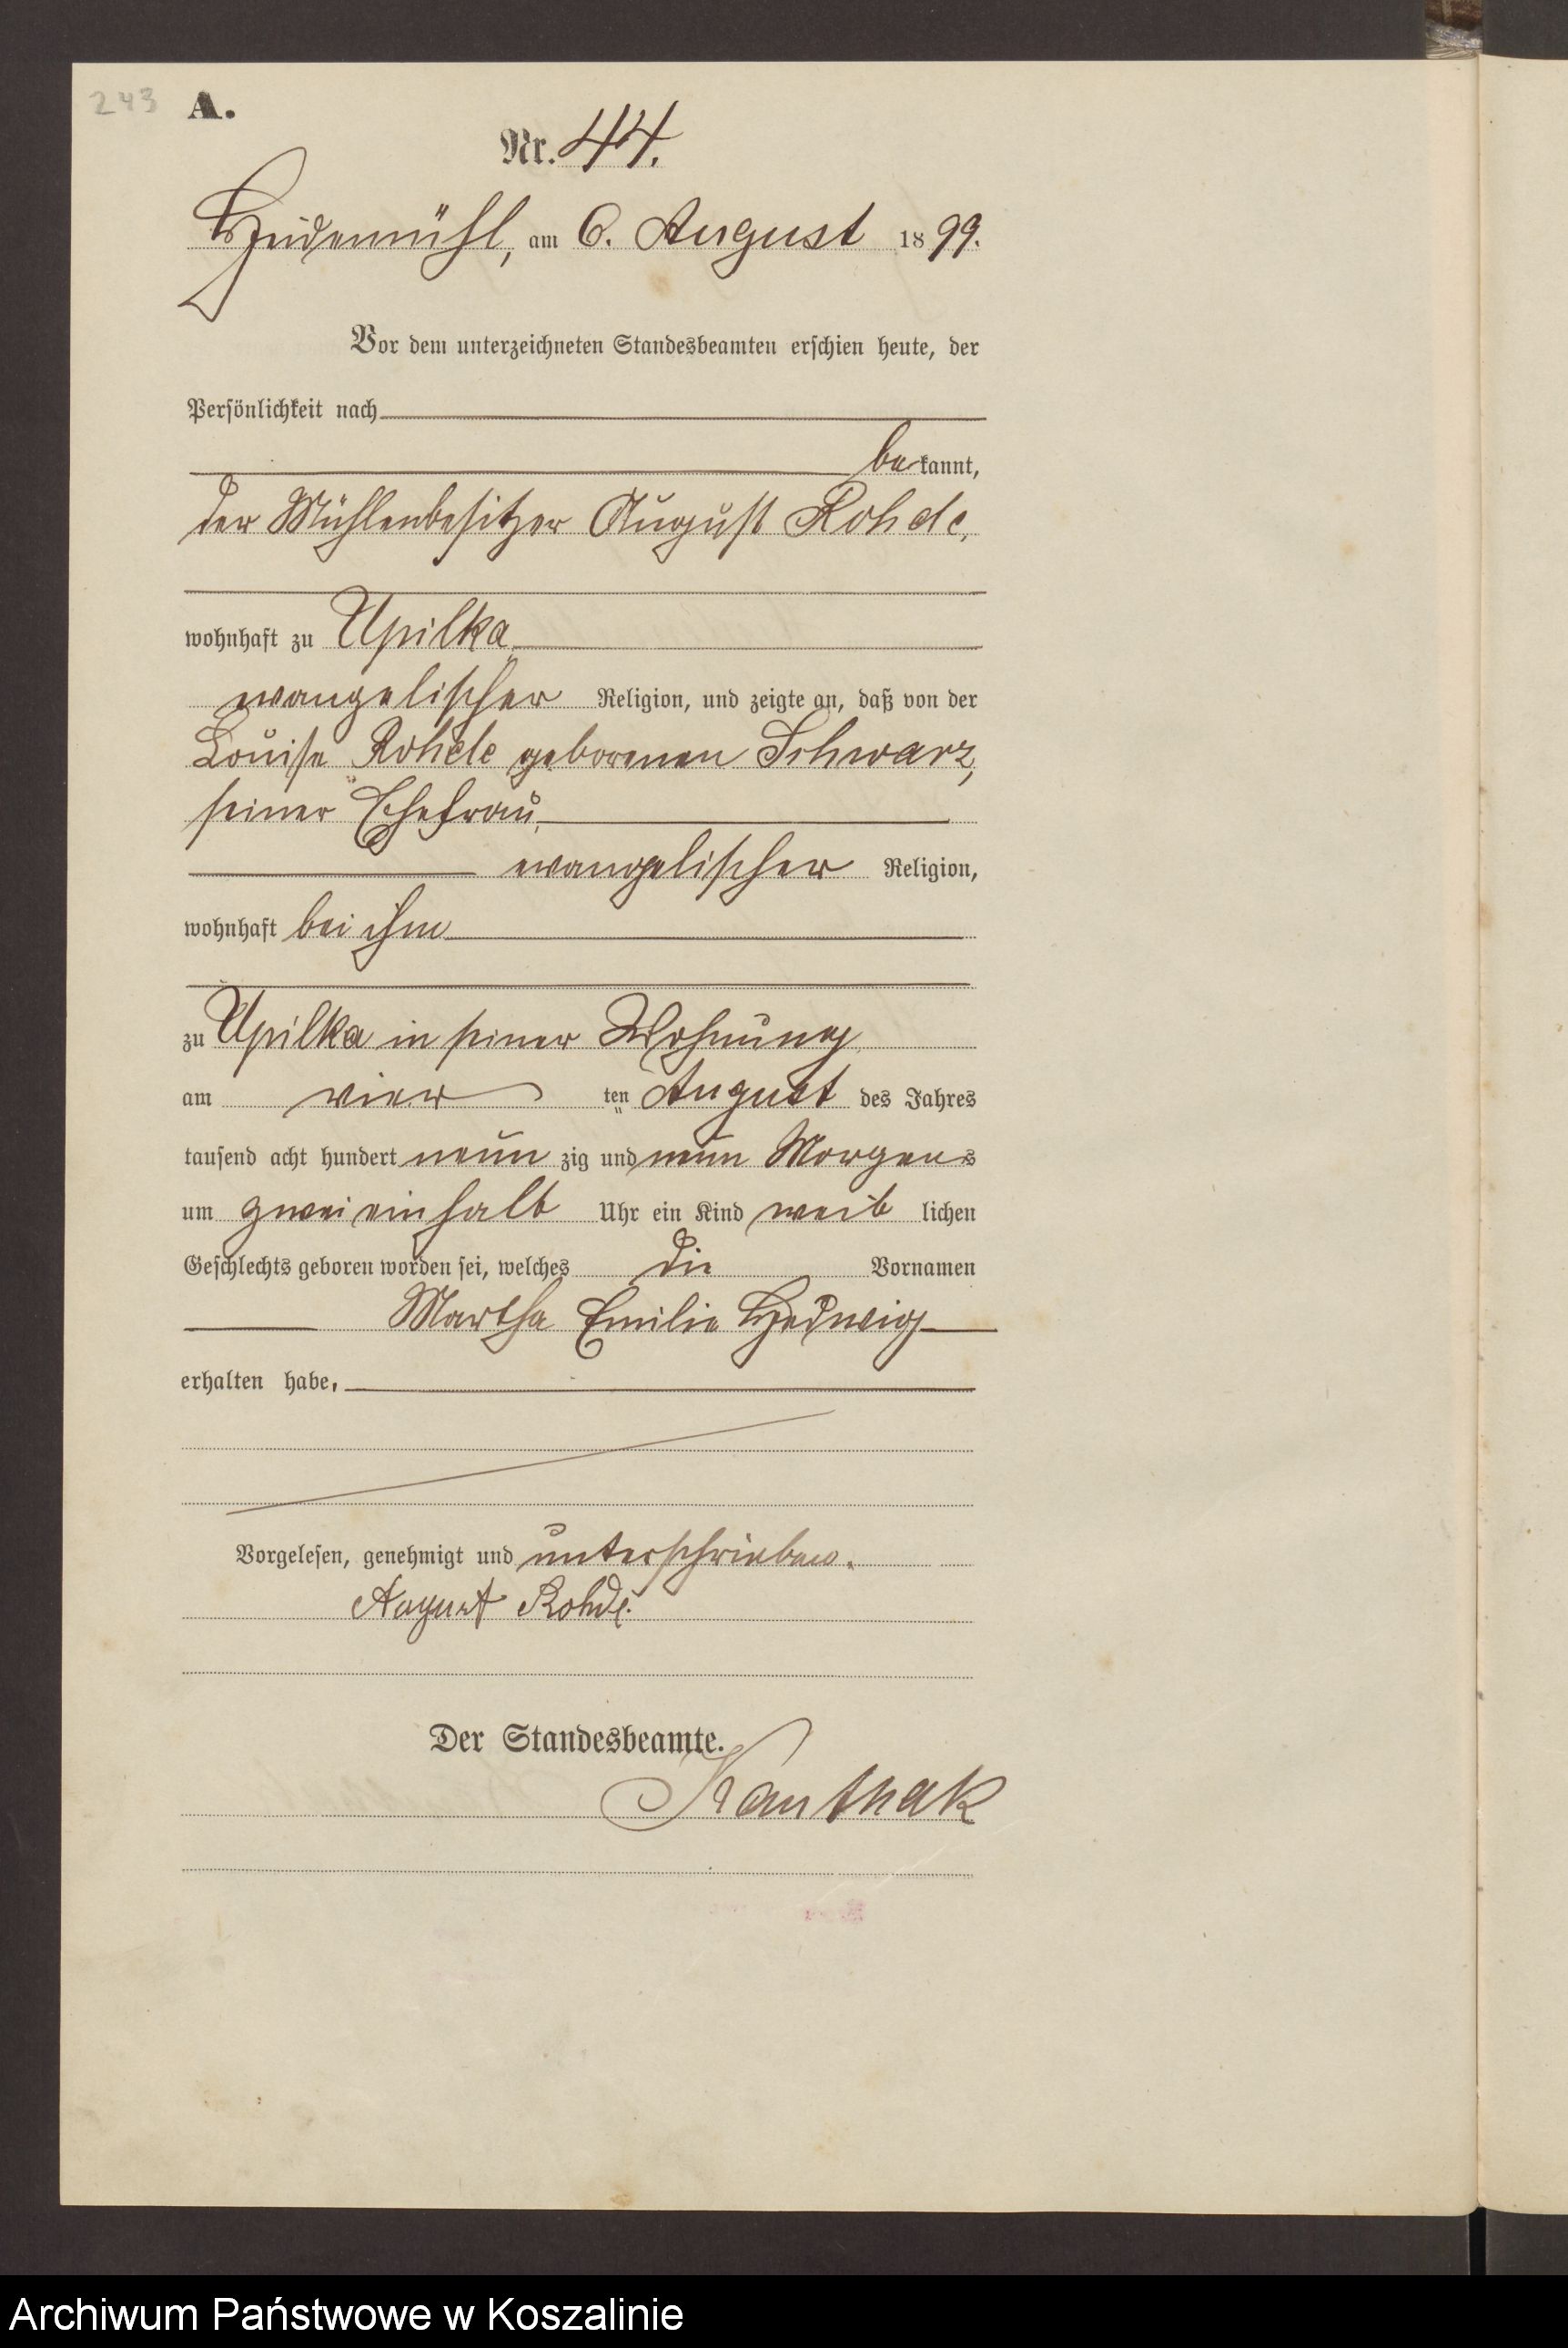 243
A.
Nr. 44.
Heidemühl, am 6. August 1899.
Vor dem unterzeichneten Standesbeamten erschien heute, der
Persönlichkeit nach
bekannt,
der Mühlenbesitzer August Rohde,
wohnhaft zu Upilka
evangelischer Religion, und zeigte an, daß von der
Louise Rohde geborenen Schwarz,
seiner Ehefrau,
evangelischer Religion,
wohnhaft bei ihm
zu Upilka in seiner Wohnung
am vier ten August des Jahres
tausend acht hundert neun zig und neun Morgens
um zwei einhalb Uhr ein Kind weib lichen
Geschlechts geboren worden sei, welches die Vornamen
Martha Emilie Hedwig
erhalten habe.
Vorgelesen, genehmigt und unterschrieben.
August Rohde.
Der Standesbeamte.
Kanthak
Archiwum Państwowe w Koszalinie